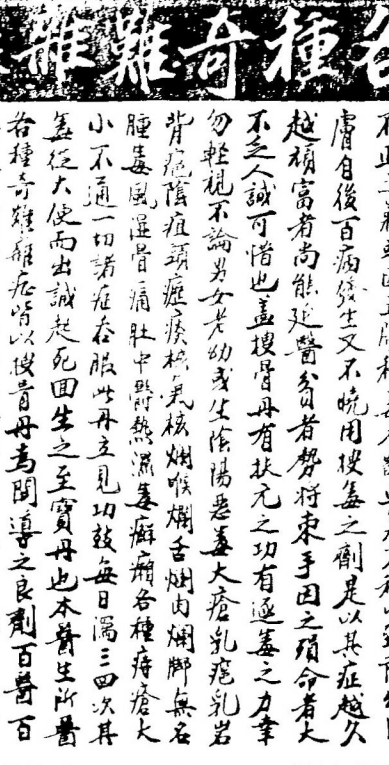 各種奇難雜
膚自後百病發生又不曉用搜毒之劑是以其症越久
越頑富者尚能延醫貧者勢將束手因之殞命者大
不乏人誠可惜也蓋搜骨丹有扶元之功有逐毒之力幸
勿輕視不論男女老幼或生陰陽惡毒大瘡乳疱乳岩
背疱陰疽頸癧痰核氣核爛喉爛舌爛肉爛脚無名
腫毒風濕骨痛肚中鬱熱濕毒癬癩各種痔瘡大
小不通一切諸症在服此丹立見功效每日瀉三四次其
毒從大便而出誠起死回生之至寶丹也本醫生所醫
各種奇難雜症皆以搜骨丹為開導之良劑百醫百